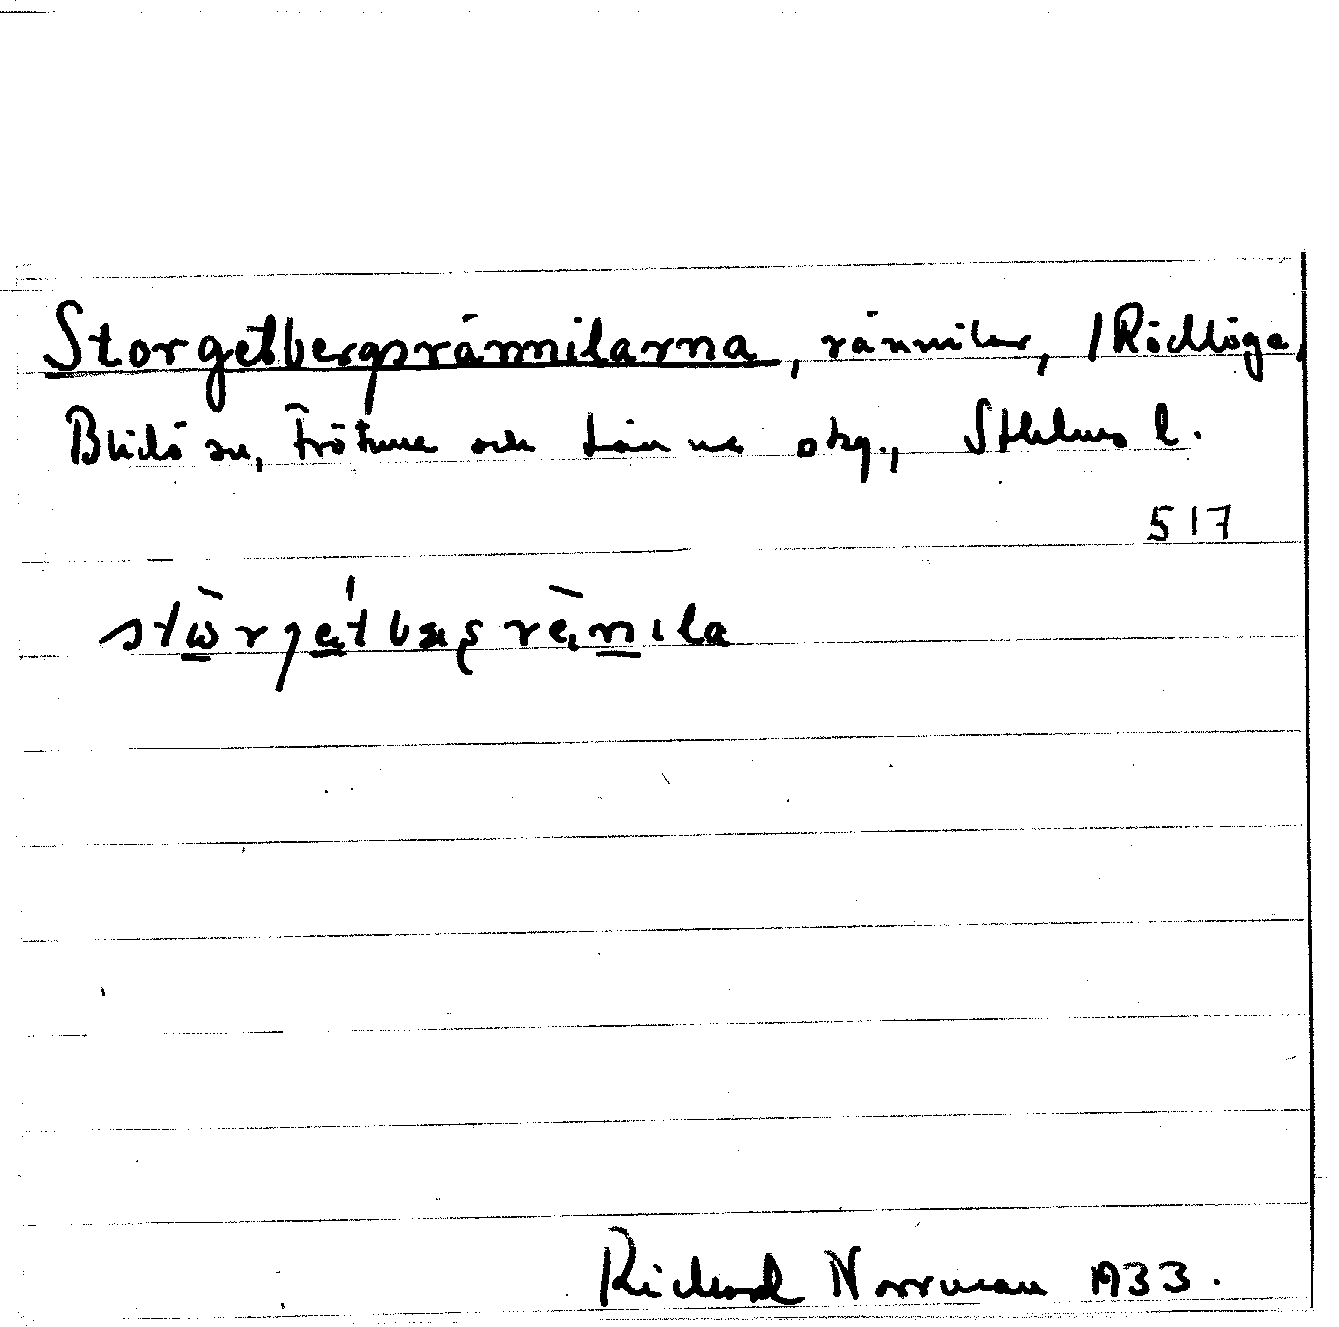 Storgetbergsrännilarna, rännilar, /Rödlöga,
Blidö sn, Frötuna och Länna skg., Sthlms l.
517
Richard Norrman 1933.